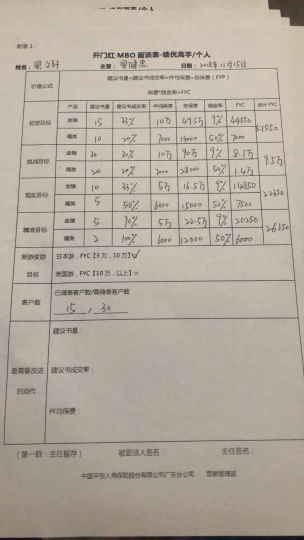 附表1：
开门红MBO面谈表-绩优高手/个人
姓名： 主管： 日期：2018年11月15日
价值公式 建议书量×建议书成交率×件均保费=总保费（FYP）
保费*佣金率=FYC
产品 建议书量 成交率 件均保费 总保费 佣金率 FYC 合计FYC
初定目标 金瑞 15 33% 10万 49.5万 9% 44550 51550
福类 10 20% 7000 14000 50% 7000
挑战目标 金瑞 30 30% 10万 90万 9% 8.1万 9.5万
福类 20 20% 7000 28000 50% 1.4万
金瑞 10 33% 5万 16.5万 9% 14850 22350
福类 5 50% 6000 15000 50% 7500
精准目标 金瑞 5 90% 5万 22.5万 9% 20250 26250
福类 2 100% 6000 12000 50% 6000
旅游奖励目标 日本游，FYC【3万，10万】√
英国游，FYC【10万，以上】□
客户数 已储备客户数/需储备客户数
15，30
最需要改进的动作 建议书量：
建议书成交率：
件均保费：
（第一联：主任留存） 被面谈人签名： 主任签名：
中国平安人寿保险股份有限公司广东分公司 营销管理部